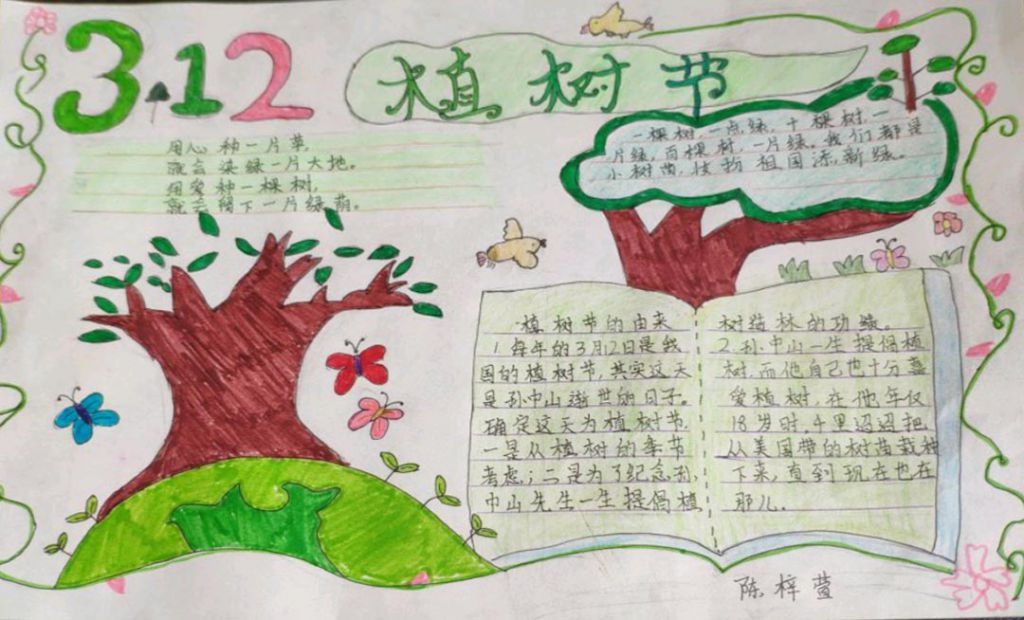 3.12
植树节
用心种一片草，
就会染绿一片大地。
用爱种一棵树，
就会留下一片绿荫。
一棵树，一点绿，十棵树，一
片绿，百棵树，一片绿。我们都是
小树苗，快给祖国添新绿。
植树节的由来
1.每年的3月12日是我
国的植树节，其实这天
是孙中山逝世的日子。
确定这天为植树节，
一是从植树的季节
考虑；二是为了纪念孙
中山先生一生提倡植
树造林的功绩。
2.孙中山一生提倡植
树，而他自己也十分喜
爱植树，在他年仅
18岁时，千里迢迢把
从美国带的树苗栽种
下来，直到现在也在
那儿。
陈梓萱